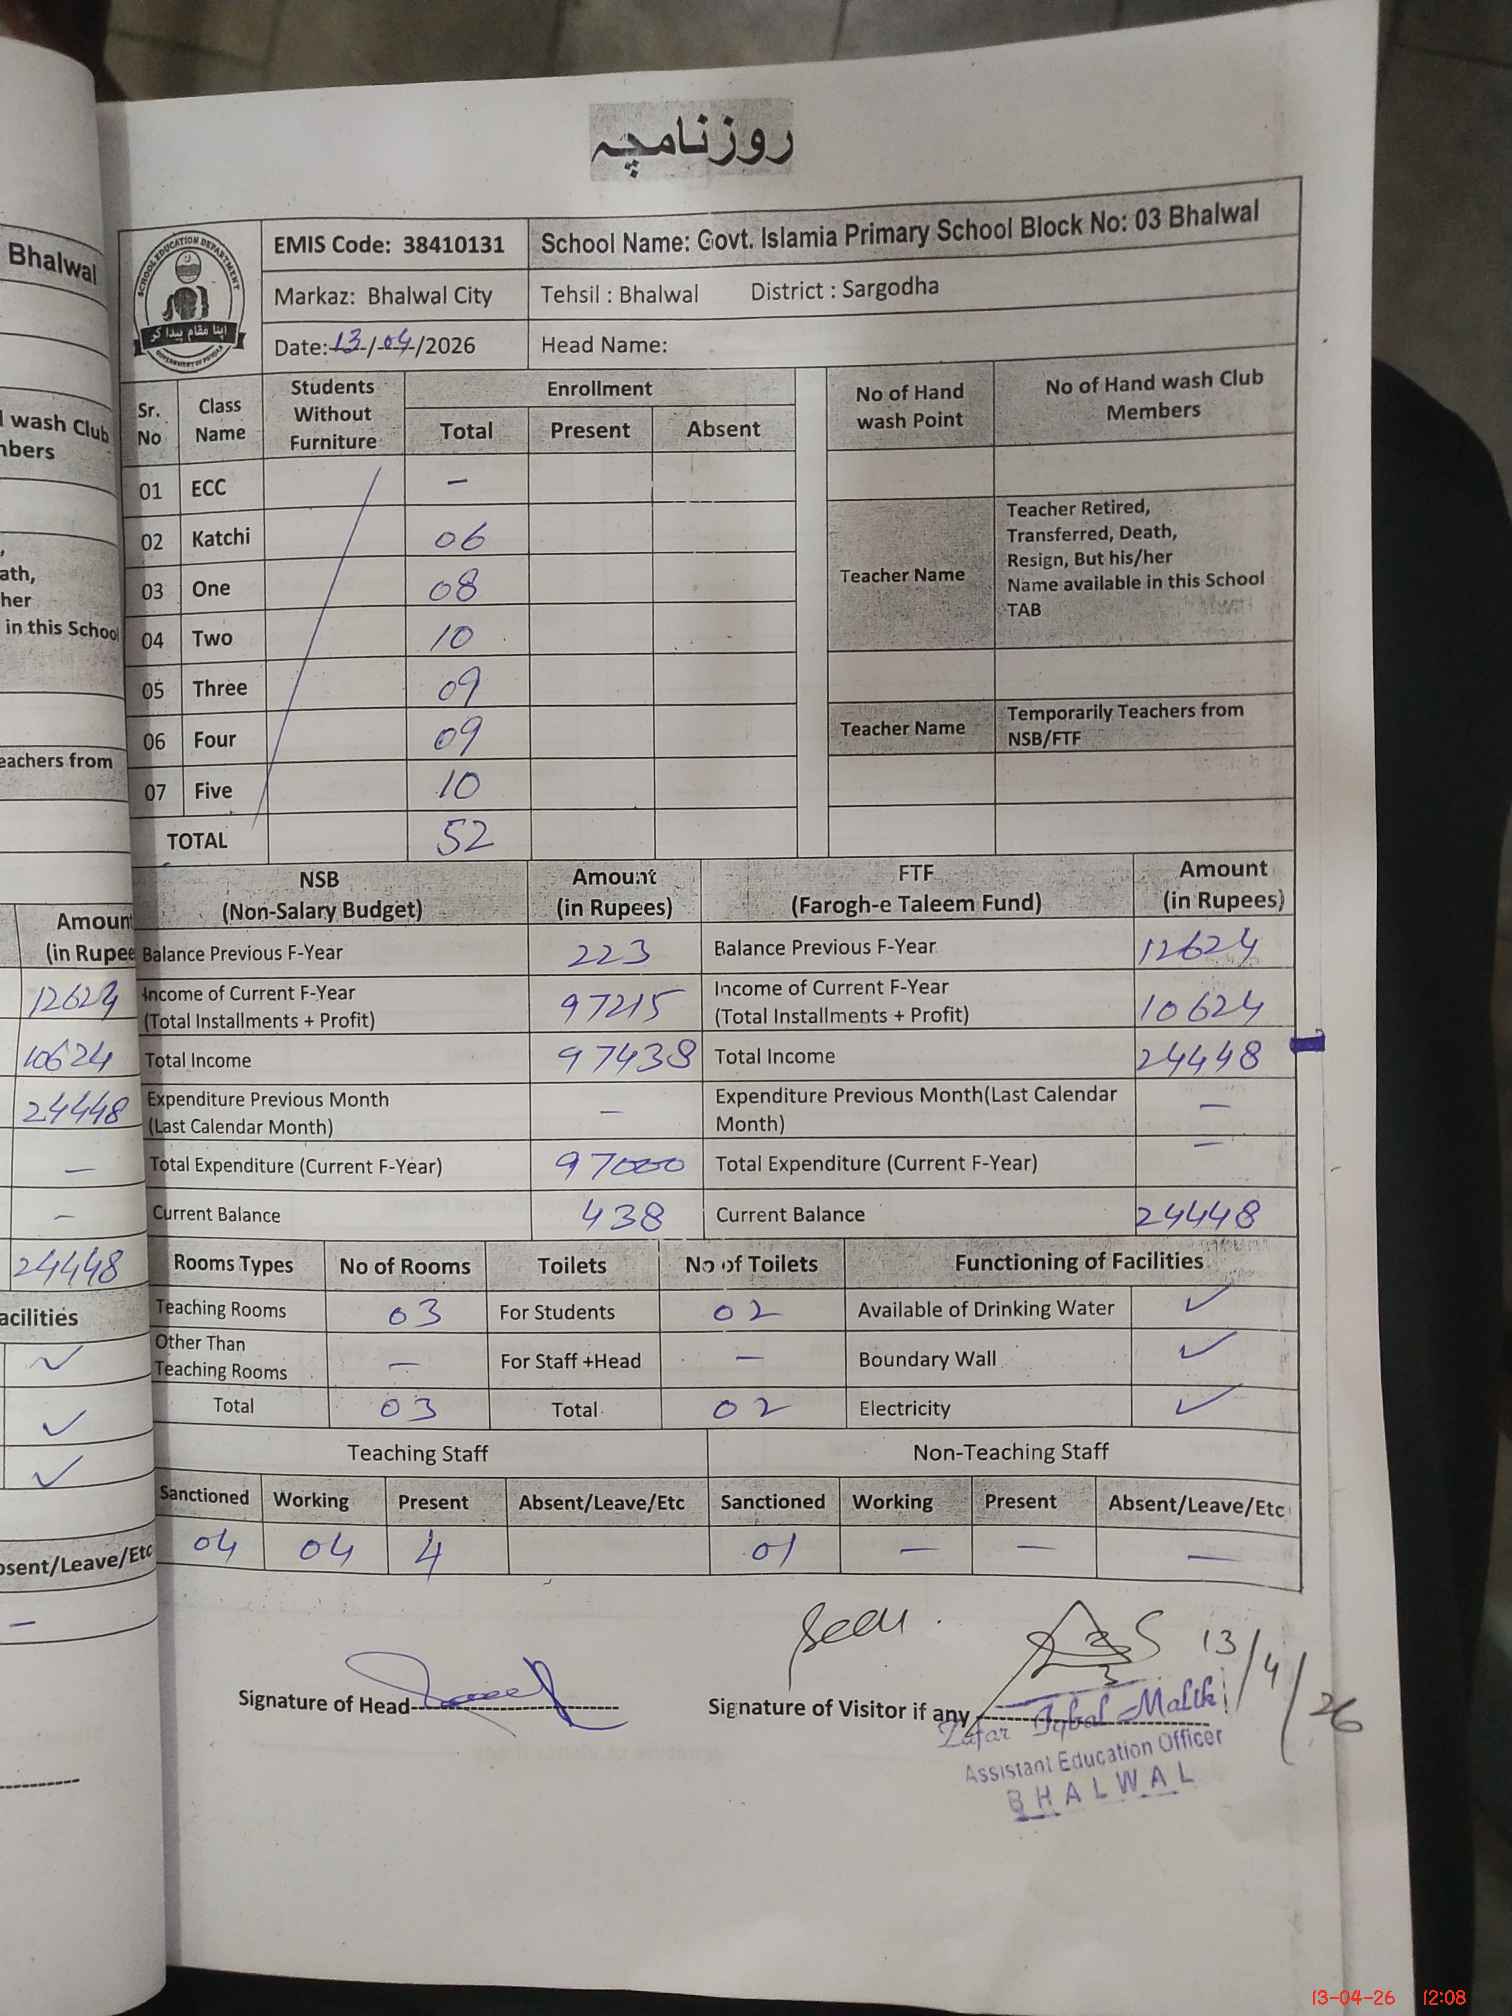 روزنامچہ
SCHOOL EDUCATION DEPARTMENT
اپنا مقام پیدا کر
GOVERNMENT OF PUNJAB
EMIS Code: 38410131 School Name: Govt. Islamia Primary School Block No: 03 Bhalwal
Markaz: Bhalwal City Tehsil : Bhalwal District : Sargodha
Date: 13/04/2026 Head Name:
Sr. No Class Name Students Without Furniture Enrollment No of Hand wash Point No of Hand wash Club Members
Total Present Absent
01 ECC –
02 Katchi 06
03 One 08
04 Two 10
05 Three 09
06 Four 09
07 Five 10
TOTAL 52
Teacher Name Teacher Retired,
Transferred, Death,
Resign, But his/her
Name available in this School
TAB
Teacher Name Temporarily Teachers from
NSB/FTF
NSB (Non-Salary Budget) Amount (in Rupees) FTF (Farogh-e Taleem Fund) Amount (in Rupees)
Balance Previous F-Year 223 Balance Previous F-Year 12624
Income of Current F-Year (Total Installments + Profit) 97215 Income of Current F-Year (Total Installments + Profit) 10624
Total Income 97438 Total Income 24448
Expenditure Previous Month (Last Calendar Month) – Expenditure Previous Month(Last Calendar Month) –
Total Expenditure (Current F-Year) 97000 Total Expenditure (Current F-Year) –
Current Balance 438 Current Balance 24448
Rooms Types No of Rooms Toilets No of Toilets Functioning of Facilities
Teaching Rooms 03 For Students 02 Available of Drinking Water ✓
Other Than Teaching Rooms – For Staff +Head – Boundary Wall ✓
Total 03 Total 02 Electricity ✓
Teaching Staff Non-Teaching Staff
Sanctioned Working Present Absent/Leave/Etc Sanctioned Working Present Absent/Leave/Etc
04 04 4 01 – – –
Seen.
13/4/26
Signature of Head Signature of Visitor if any
Zafar Iqbal Malik
Assistant Education Officer
BHALWAL
Bhalwal
wash Club
mbers
ath,
her
in this School
eachers from
Amount
(in Rupee
12624
10624
24448
–
–
24448
acilities
✓
✓
✓
bsent/Leave/Etc
–
13-04-26 12:08